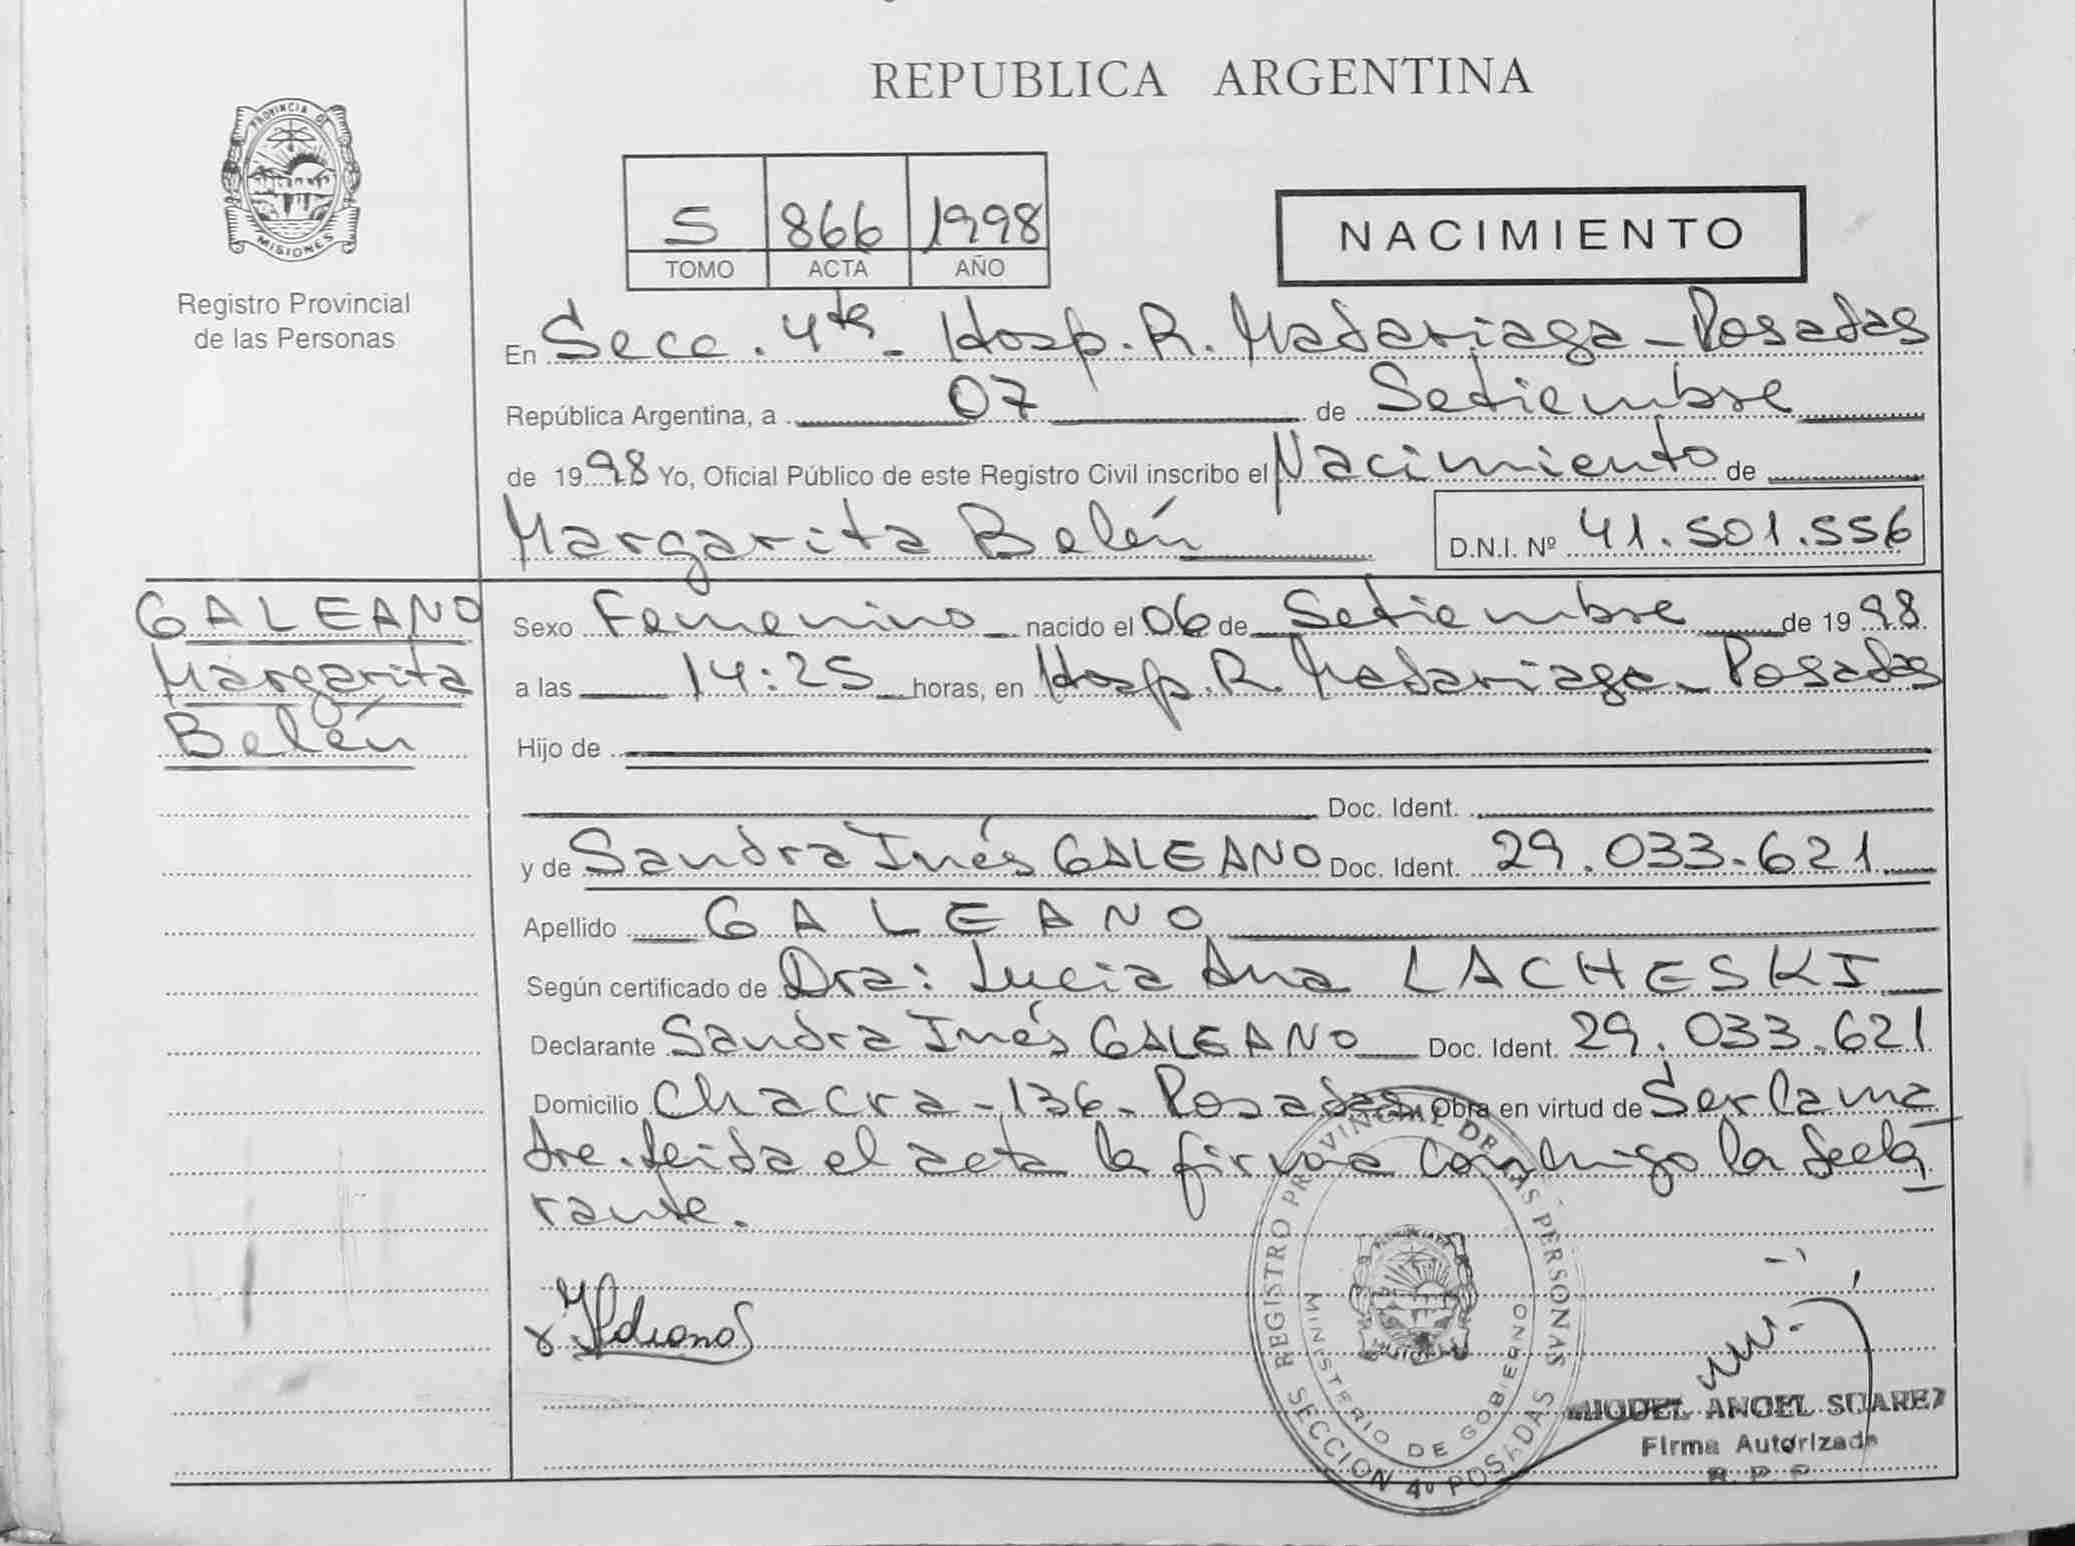 REPUBLICA ARGENTINA
PROVINCIA DE
MISIONES
Registro Provincial
de las Personas
5 866 1998
TOMO ACTA AÑO
NACIMIENTO
En Secc. 4ta - Hosp. R. Madariaga - Posadas
República Argentina, a 07 de Setiembre
de 1998 Yo, Oficial Público de este Registro Civil inscribo el Nacimiento de
Margarita Belén D.N.I. Nº 41.501.556
GALEANO
Margarita
Belén
Sexo Femenino nacido el 06 de Setiembre de 1998
a las 14:25 horas, en Hosp. R. Madariaga - Posadas
Hijo de
Doc. Ident.
y de Sandra Inés GALEANO Doc. Ident. 29.033.621
Apellido GALEANO
Según certificado de Dra: Lucia Ana LACHESKI
Declarante Sandra Inés GALEANO Doc. Ident. 29.033.621
Domicilio Chacra - 136 - Posadas Obra en virtud de Ser la ma
dre. Leida el acta la firma conmigo la decla
rante.
REGISTRO PROVINCIAL DE LAS PERSONAS
MINISTERIO DE GOBIERNO
SECCION 4º POSADAS
MIGUEL ANGEL SUAREZ
Firma Autorizada
R.P.P.